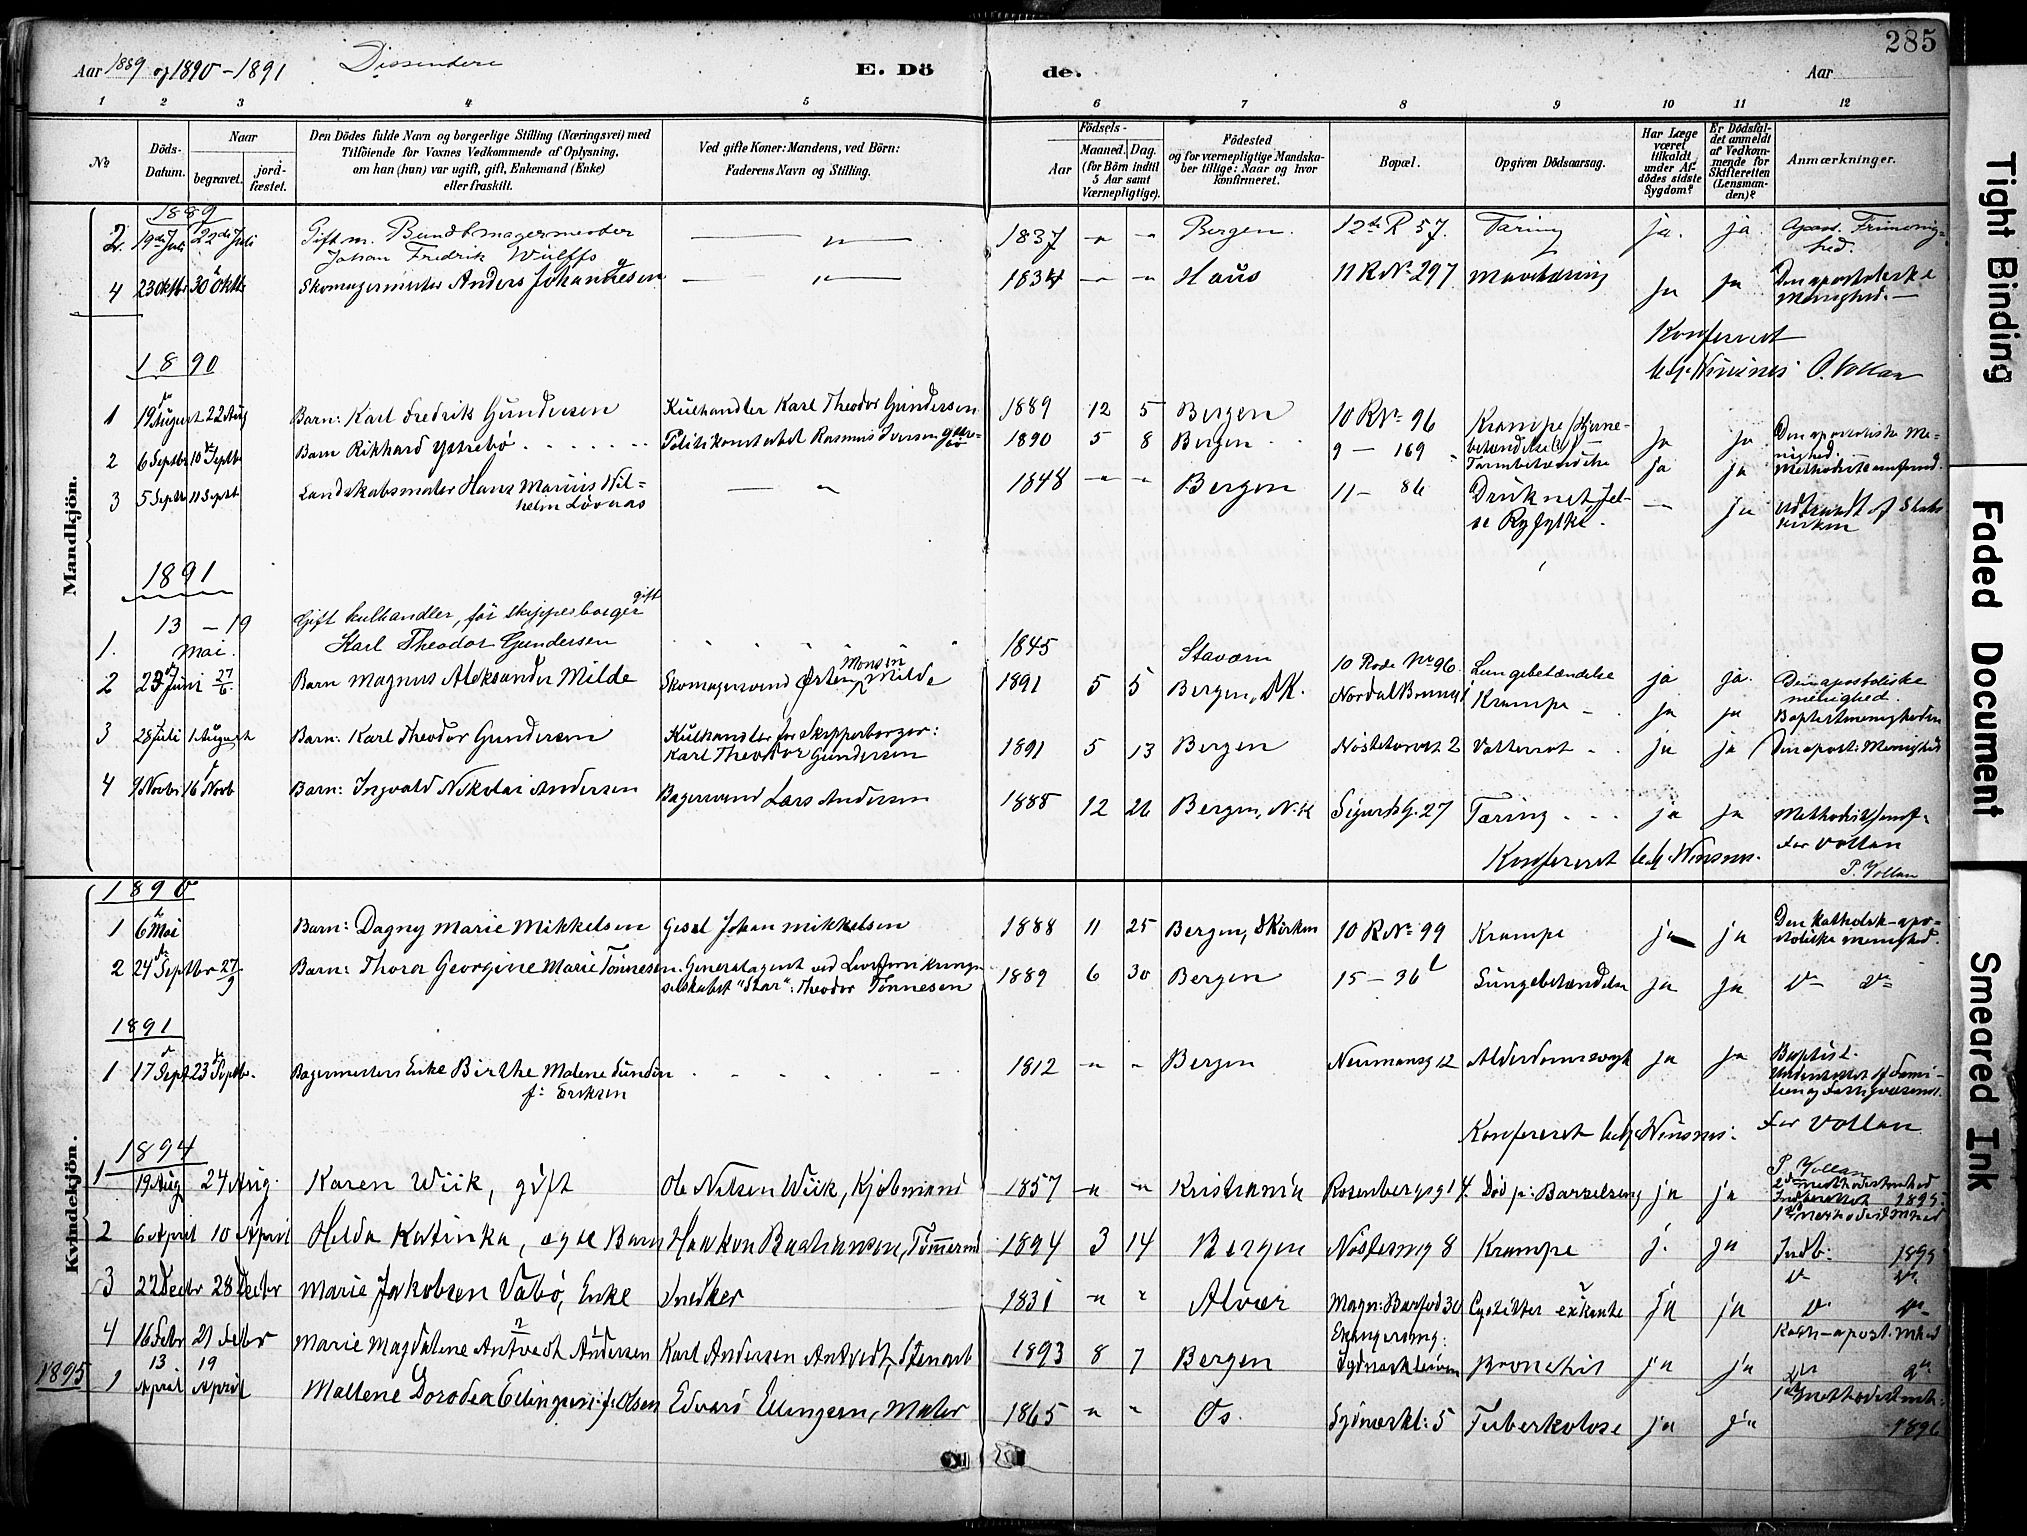 285
Aar 1889 og 1890-1891 Dissentere E. Dö de. Aar
1 2 3 4 5 6 7 8 9 10 11 12
No
Döds-Datum.
Naar
begravet.
jord-fæstet.
Den Dödes fulde Navn og borgerlige Stilling (Næringsvei) med
Tilföiende for Voxnes Vedkommende af Oplysning,
om han (hun) var ugift, gift, Enkemand (Enke)
eller fraskilt.
Ved gifte Koner: Mandens, ved Börn:
Faderens Navn og Stilling.
Födsels-
Aar
Maaned. Dag.
(for Börn indtil
5 Aar samt
Værnepligtige).
Födested
og for værnepligtige Mandska-
ber tillige: Naar og hvor
konfirmeret.
Bopæl.
Opgiven Dödsaarsag.
Har Læge
været
tilkaldt
under Af-
dödes sidste
Sygdom?
Er Dödsfal-
det anmeldt
af Vedkom-
mende for
Skifteretten
(Lensman-
den)?
Anmærkninger.
Mandkjön.
1889
2. 19de Juli 22de Juli Gift m. Bundtmagermester
Johan Fredrik Wulffs — „ — 1837 „ „ Bergen. 12te R 57. Tæring ja. ja. Apost. Frimenig-
hed.
4 23 Oktbr 30 Oktbr Skomagermester Anders Johannesen — „ — 1834 „ „ Haus 11 R No 297 Mavetæring ja ja Den apostoliske
Menighed.—
Konfereret
Winsnes P. Vollan
1890
1 19 August 22 Aug Barn: Karl Fredrik Gundersen Kulhandler Karl Theodor Gundersen 1889 12 5 Bergen 10 R No 96 Krampe (Hjerne-
betændelse) ja ja Den apostoliske Me-
nighed.
2 6 Septbr 10 Septbr Barn Rikhard Ystebø Politikonstabel Rasmus Iversen 1890 5 8 Bergen 9 — 169 Tarmbetændelse ja ja Methodistsamfund.
3 5 Septbr 11 Septbr Landskabsmaler Hans Marius Wil-
helm Løvaas — „ 1848 „ „ Bergen 11 — 86 Druknet, Jel-
sø Ryfylke. — ja Udtraadt af Stats
kirken
1891
1. 13 — 19
Mai. Gift kulhandler, før skippesborger
gift
Karl Theodor Gundersen 1845 Stavern 10 Rode No 96. Lungebetændelse ja ja. Den apostoliske
menighed.
2 23 Juni 27/6 Barn Magnus Aleksander Milde Skomagersvend Østen Monsen Milde 1891 5 5 Bergen, D.K. Nordal Brunsg 1 Krampe ja ja Baptistmenigheden
3 28 Juli 1 August Barn: Karl Theodor Gundersen Kulhandler før Skipperborger:
Karl Theodor Gundersen 1891 5 13 Bergen Nøstetorvet 2 Vattersot ja ja Den apost: Menighed
4 9 Novbr 16 Novb Barn: Ingvald Nikolai Andersen Bagersvend Lars Andersen 1888 12 26 Bergen, N.K Sigurdsg. 27 Tæring ja ja Methodistsamf.
Konfereret Winsnes. For Vollan
P. Vollan
Kvindekjön.
1890
1 6 Mai Barn: Dagny Marie Mikkelsen Gesel Johan Mikkelsen 1888 11 25 Bergen, D Kirken 10 R No 99 Krampe ja ja Den katholsk-apo-
stoliske menighed.
2 24 Septbr 27/9 Barn: Thora Georgine Marie Tønnesen Generalagent ved Livsforsikrings
selskabet "Star": Theodor Tønnesen 1889 6 30 Bergen 15 — 36 Lungebetændelse ja ja
1891
1 17 Sept 23 Septbr. Bagermesters Enke Birthe Malene Sundin
f: Eriksen 1812 „ „ Bergen Neumansg 12 Alderdomssvagh ja ja Baptist.
Konfereret Winsnes. For Vollan
P. Vollan
1894
1 19 Aug 24 Aug. Karen Wiik, gift Ole Nilsen Wiik, Kjøbmand 1857 „ „ Kristiania Rosenbergsg 14. Død p: Barselseng ja ja 2den methodistmhed
Indberettet 1895.
2 6 April 10 April Hilda Katinka, ægte Barn Haakon Bachansen, Tømmermd 1894 3 14 Bergen Nøstesmg 8 Krampe j. ja 1ste methodistmhed
Indb: 1895
3 22 Decbr 28 Decbr Marie Jakobsen Vabø, Enke Snedker 1831 „ „ Alvær Magn: Barfod 30 Cystitter ja ja
4 16 Febr 21 Febr Marie Magdalene Antvedt Andersen Karl Andersen Antvedt, Stenarb 1893 8 7 Bergen Sydnæskleiven Bronchit ja ja Kath-apost. mhed
1895
1 13 April 19 April Mallene Dorodea Ellingsen f. Olsen Edvard Ellingsen, Maler 1865 „ „ Os. Sydnæskl: 5 Tuberkulose ja ja 1ste Methodistmh:
1896
Tight Binding
Faded Document
Smeared Ink